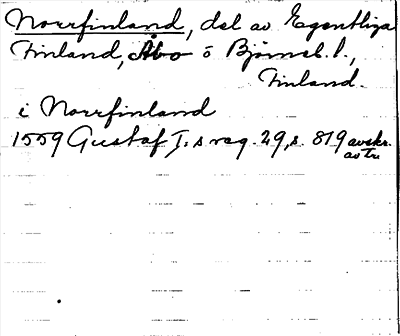 Norrfinland, del av Egentliga
Finland, Åbo o Björneb. l.,
Finland.
i Norrfinland
1559 Gustaf I:s reg. 29, s. 819 avskr.
av tr.